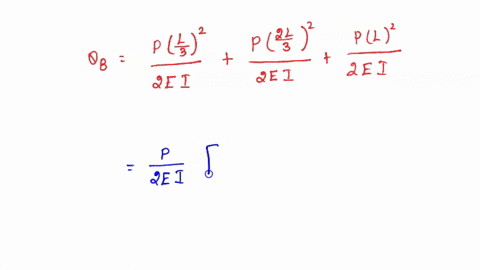 θ_B = P(L/3)²/2EI + P(2L/3)²/2EI + P(L)²/2EI
= P/2EI [